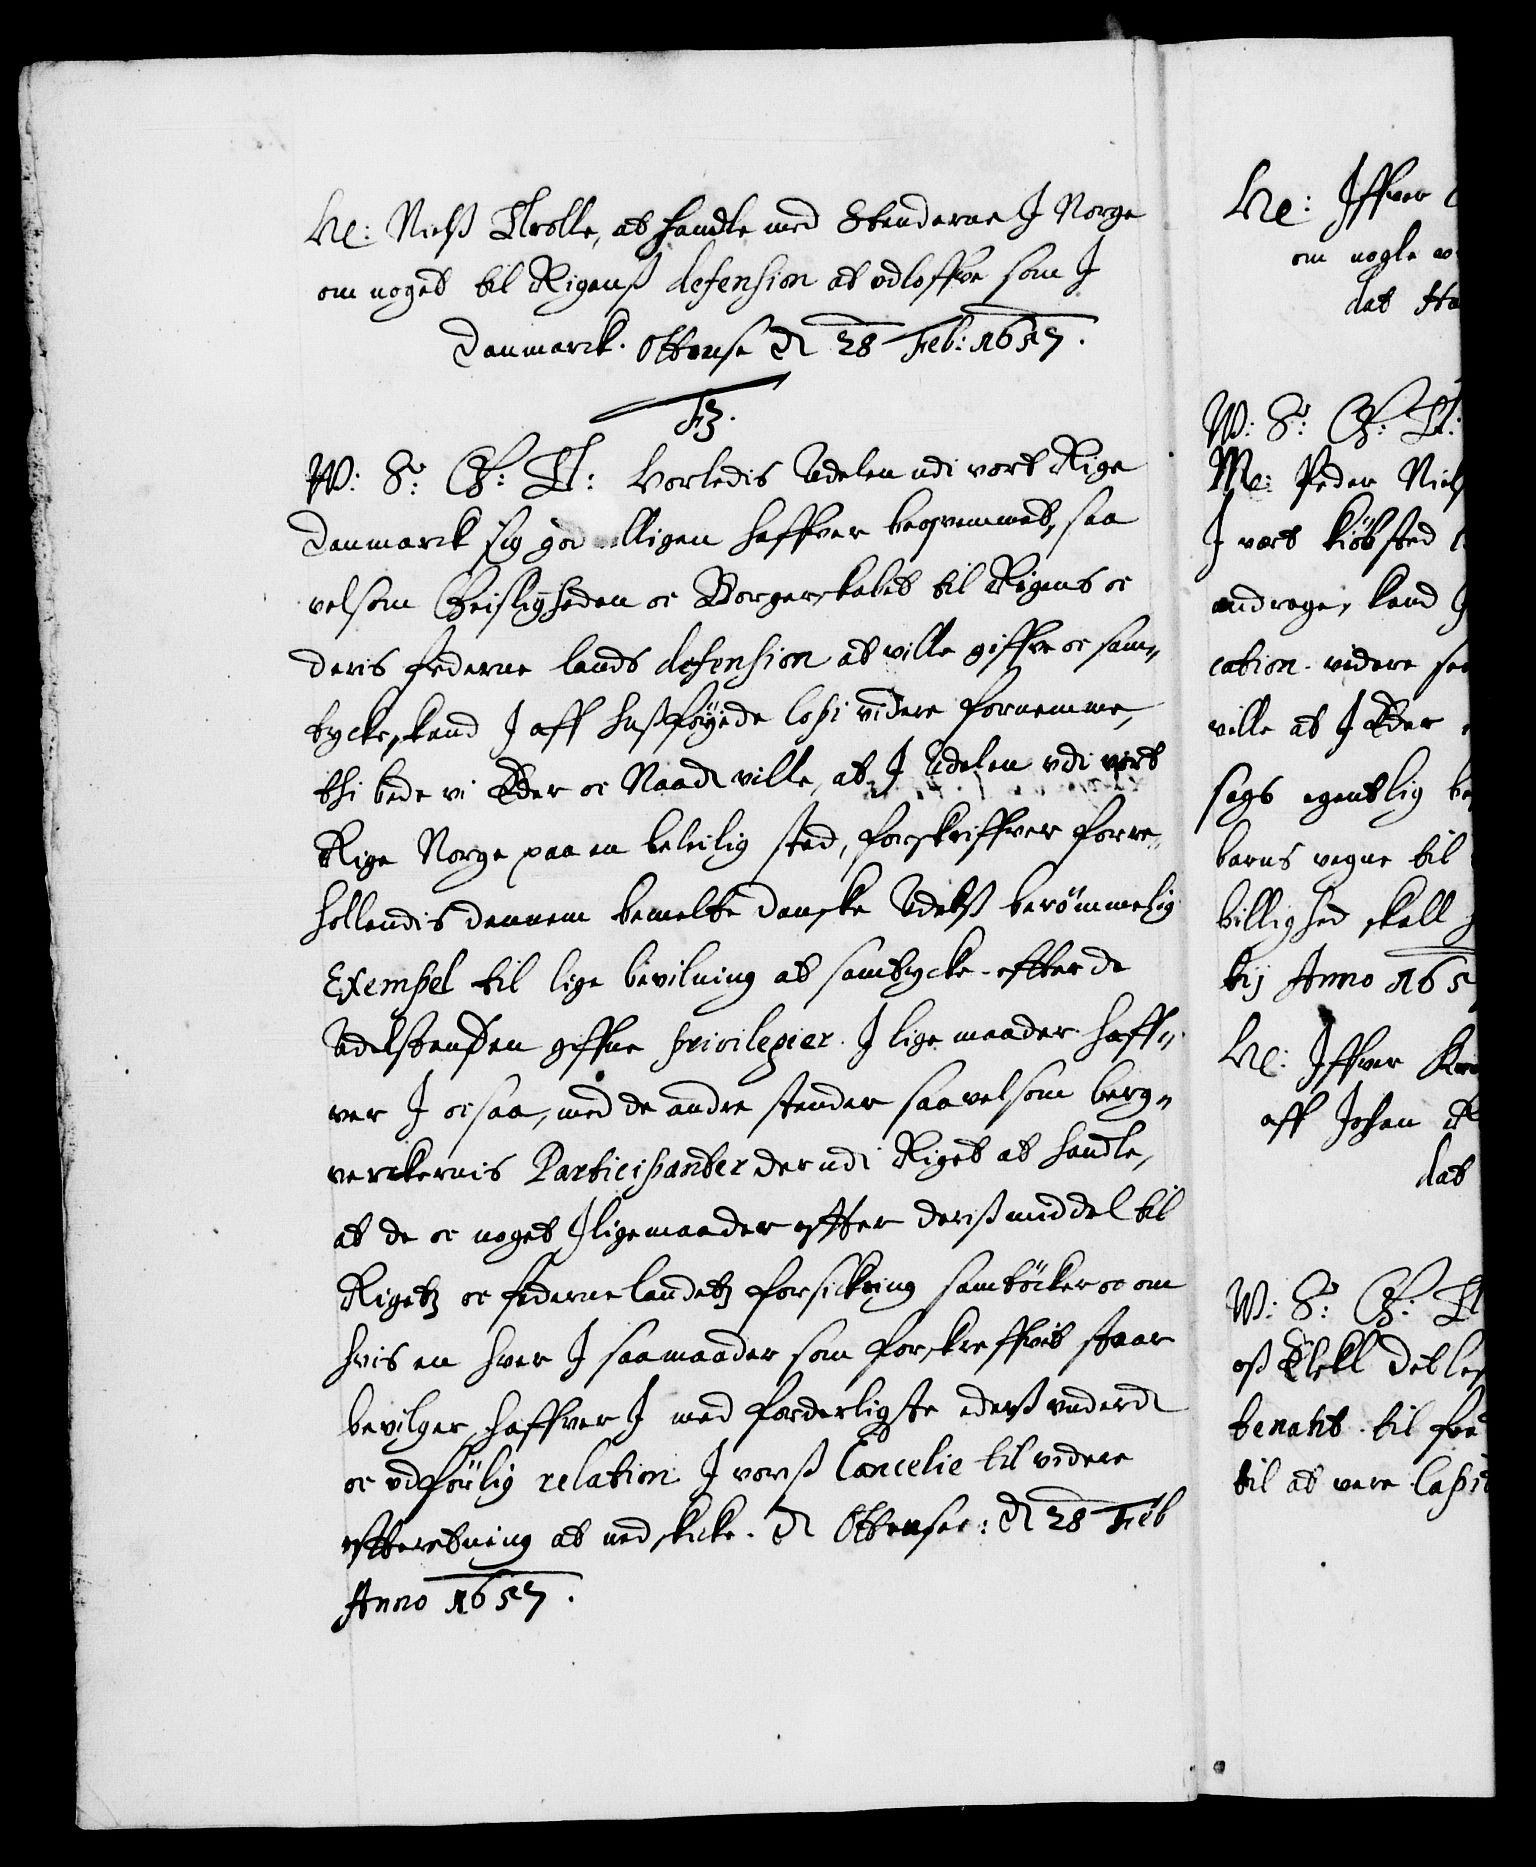 He: Nielß Trolle, at handle med Stenderne I Norge
om noget til Rigenß defension at udloffve som I
Danmarck. Ottense d 28 Feb: 1657.
F3.
W: S: G: T: Vorledis Adelen udi vort Rige
Danmarck sig godvilligen haffver beqvemmet, saa
velsom Geisligheden oc Borgerskabet til Rigens oc
deris federne lands defension at ville giffve oc sam„
tycke, kand I aff hoßföyede copi videre fornemme,
thi bede vi Eder oc Naadl ville, at I Adelen udi vort
Rige Norge paa en beleilig sted, forskriffver forre„
hollendis dennem bemelte danske Adelß berömmelig
Exempel til lige bevilning at samtycke efter de
Adelstanden giffne privilegier. I lige maader haff„
ver I oc saa, med de andre stender saavelsom berg„
verckernis Participanter der udi Riget at handle,
at de oc noget I lige maader effter deriß middel til
Rigetz oc federnelandetz forsickring samtöcker oc om
hvis en hver I saa maader som forskreffvit staar
bevilger, haffver I med forderligste ederß underd
oc udförlig relation I vorß Cancelie til videre
efterretning at nedskicke. d Ottensee: d 28 Feb
Anno 1657.
He: Iffver
om nogle
dat
W: S: G: T:
Me: Peder Niels
I vort kiöbsted
andrager, kand
cation videre see
ville at I Eder
sags egentlig
barns vegne til
billighed skell
tij Anno 165
He: Iffver
aff Johan
dat
W: S: G: T
oß Elskl Detlef
til at vere